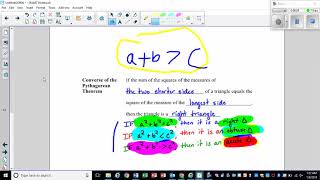 a+b > c
Converse of the
Pythagorean
Theorem
If the sum of the squares of the measures of
the two shorter sides of a triangle equals the
square of the measure of the longest side
then the triangle is a right triangle
IF a²+b²=c², then it is a right △
IF a²+b²<c², then it is an obtuse △
IF a²+b²>c², then it is an acute △